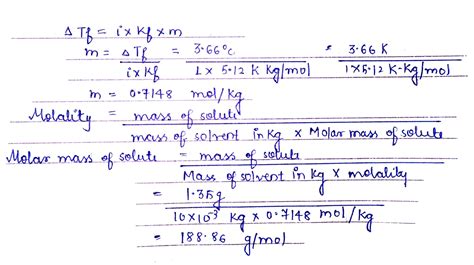 Δ Tf = i x Kf x m
m = Δ Tf / i x Kf = 3.66°C / 1 x 5.12 K Kg/mol = 3.66 K / 1x5.12 K-Kg/mol
m = 0.7148 mol/kg
Molality = mass of solute / mass of solvent in Kg x Molar mass of solute
Molar mass of solute = mass of solute / Mass of solvent in Kg x molality
= 1.35g / 10x10⁻³ kg x 0.7148 mol/kg
= 188.86 g/mol